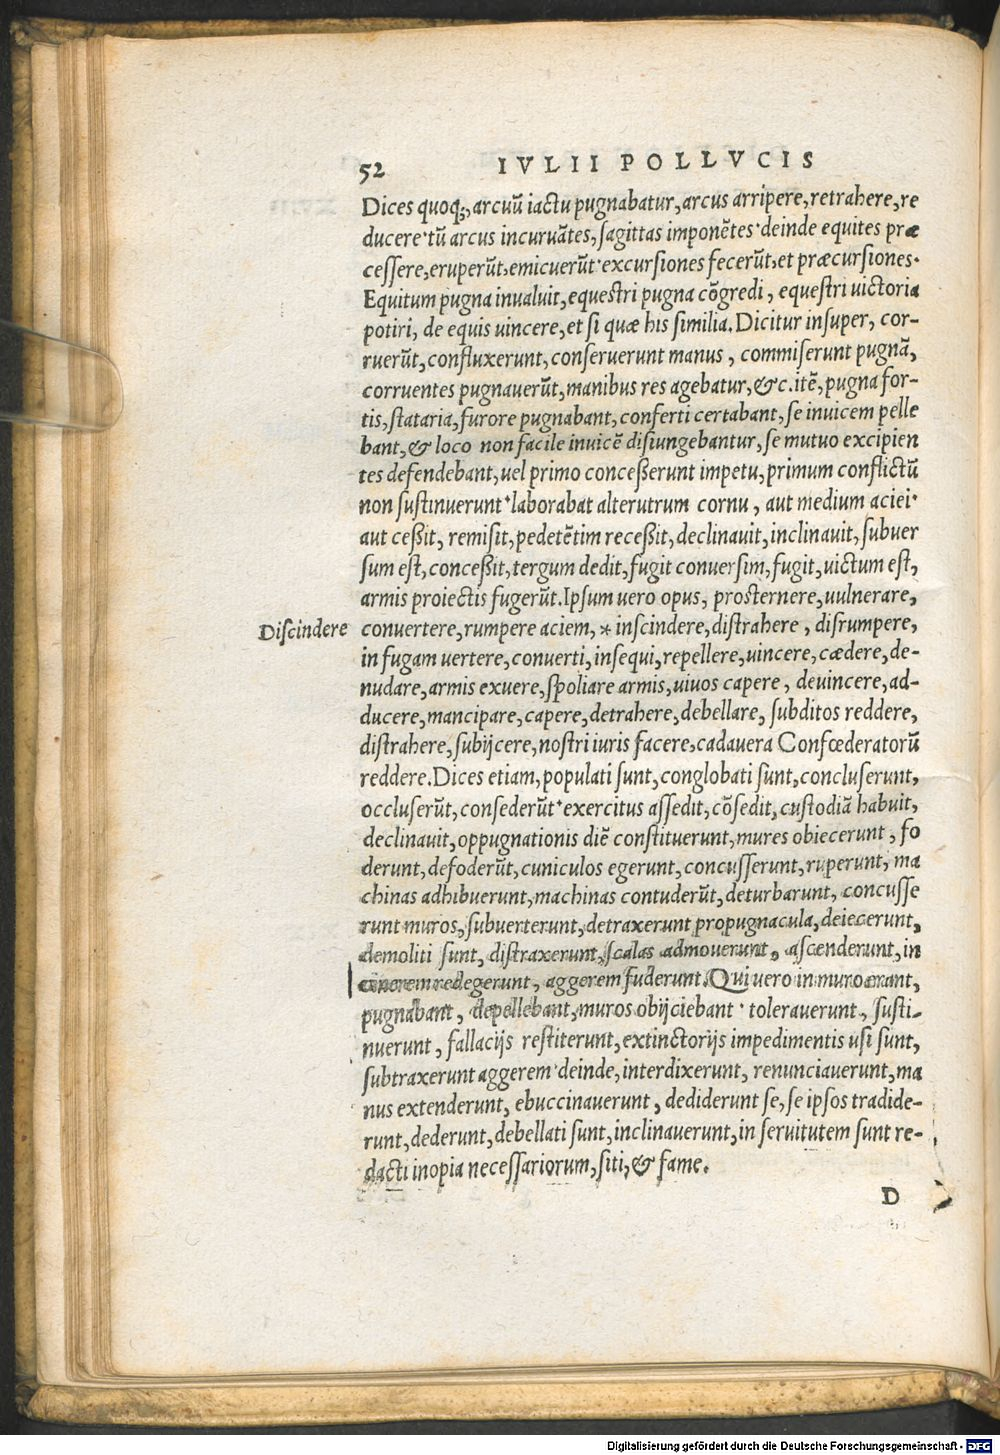 52 IVLII POLLVCIS
Dices quoq;, arcuū iactu pugnabatur, arcus arripere, retrahere, re
ducere· tū arcus incuruātes, sagittas imponētes· deinde equites præ
cessere, eruperūt, emicuerūt· excursiones fecerūt, et præcursiones·
Equitum pugna inualuit, equestri pugna cōgredi, equestri uictoria
potiri, de equis uincere, et si quæ his similia. Dicitur insuper, cor-
ruerūt, confluxerunt, conseruerunt manus, commiserunt pugnā,
corruentes pugnauerūt, manibus res agebatur, &c. itē, pugna for-
tis, stataria, furore pugnabant, conferti certabant, se inuicem pelle
bant, & loco non facile inuicē disiungebantur, se mutuo excipien
tes defendebant, uel primo conceßerunt impetu, primum conflictū
non sustinuerunt· laborabat alterutrum cornu, aut medium aciei·
aut ceßit, remisit, pedetētim receßit, declinauit, inclinauit, subuer
sum est, conceßit, tergum dedit, fugit conuersim, fugit, uictum est,
armis proiectis fugerūt. Ipsum uero opus, prosternere, uulnerare,
Discindere
conuertere, rumpere aciem, * inscindere, distrahere, disrumpere,
in fugam uertere, conuerti, insequi, repellere, uincere, cædere, de-
nudare, armis exuere, spoliare armis, uiuos capere, deuincere, ad-
ducere, mancipare, capere, detrahere, debellare, subditos reddere,
distrahere, subijcere, nostri iuris facere, cadauera Confœderatorū
reddere. Dices etiam, populati sunt, conglobati sunt, concluserunt,
occluserūt, consederūt· exercitus assedit, cōsedit, custodiā habuit,
declinauit, oppugnationis diē constituerunt, mures obiecerunt, fo
derunt, defoderūt, cuniculos egerunt, concusserunt, ruperunt, ma
chinas adhibuerunt, machinas contuderūt, deturbarunt, concusse
runt muros, subuerterunt, detraxerunt propugnacula, deiecerunt,
demoliti sunt, distraxerunt, scalas admouerunt, ascenderunt, in
cinerem redegerunt, aggerem fuderunt. Qui uero in muro erant,
pugnabant, depellebant, muros obijciebant· tolerauerunt, susti-
nuerunt, fallacijs restiterunt, extinctorijs impedimentis usi sunt,
subtraxerunt aggerem· deinde, interdixerunt, renunciauerunt, ma
nus extenderunt, ebuccinauerunt, dediderunt se, se ipsos tradide-
runt, dederunt, debellati sunt, inclinauerunt, in seruitutem sunt re-
dacti inopia necessariorum, siti, & fame.
D
Digitalisierung gefördert durch die Deutsche Forschungsgemeinschaft - DFG